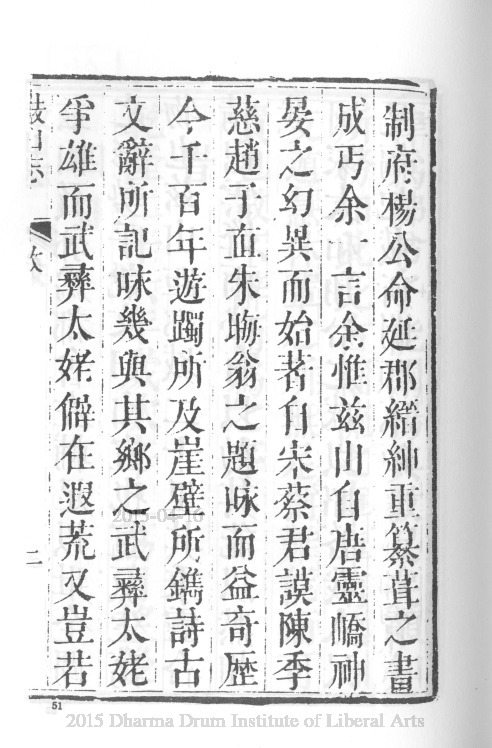 制府楊公命延郡縉紳重纂葺之書
成丐余一言余惟兹山自唐靈嶠神
晏之幻異而始著自宋蔡君謨陳季
慈趙子直朱晦翁之題咏而益奇歷
今千百年遊躅所及崖壁所鐫詩古
文辭所記咏幾與其鄉之武彝太姥
爭雄而武彝太姥僻在遐荒又豈若
鼓山志
二
51
2015-04-16
2015 Dharma Drum Institute of Liberal Arts